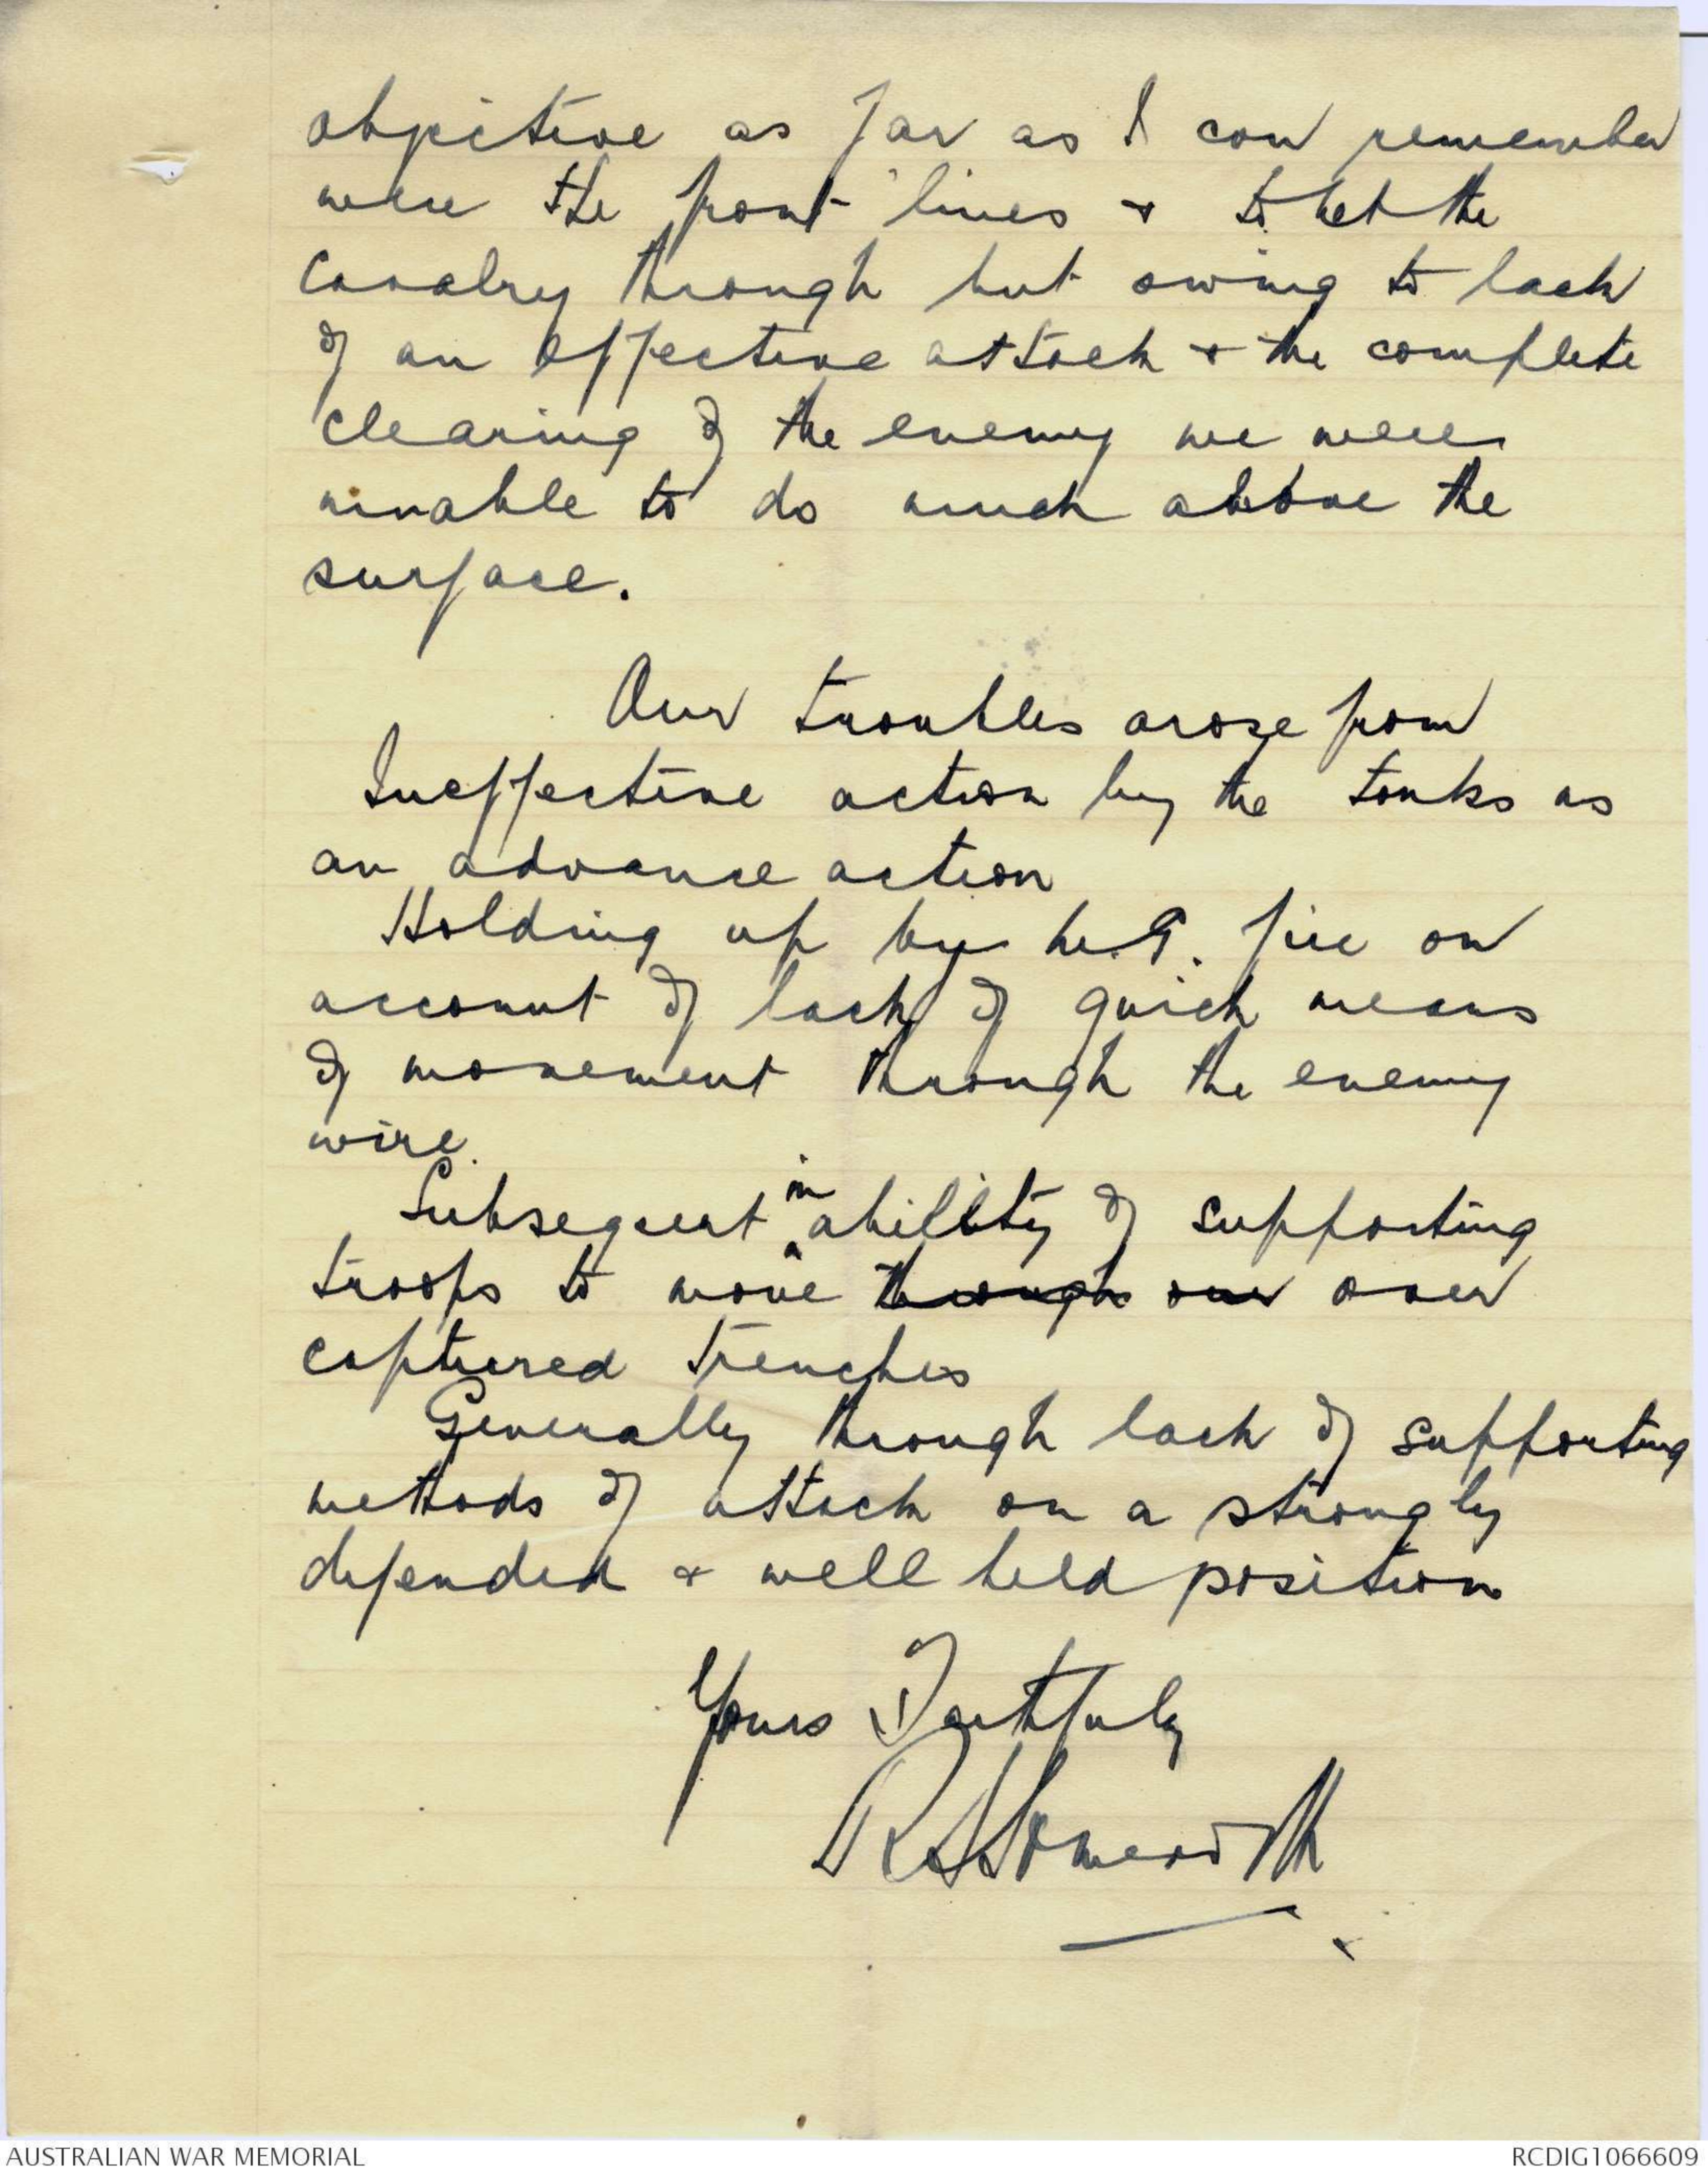 objective as far as I can remember
were the front lines & to let the
Cavalry through but owing to lack
of an effective attack & the complete
clearing of the enemy we were
unable to do much above the
surface.
Our troubles arose from
Ineffective action by the tanks as
an advance action
Holding up by M.G. fire on
account of lack of quick means
of movement through the enemy
wire.
Subsequent inability of supporting
troops to move through our over
captured trenches
Generally through lack of supporting
methods of attack on a strongly
defended & well held position
Yours Faithfuly
AUSTRALIAN WAR MEMORIAL
RCDIG1066609